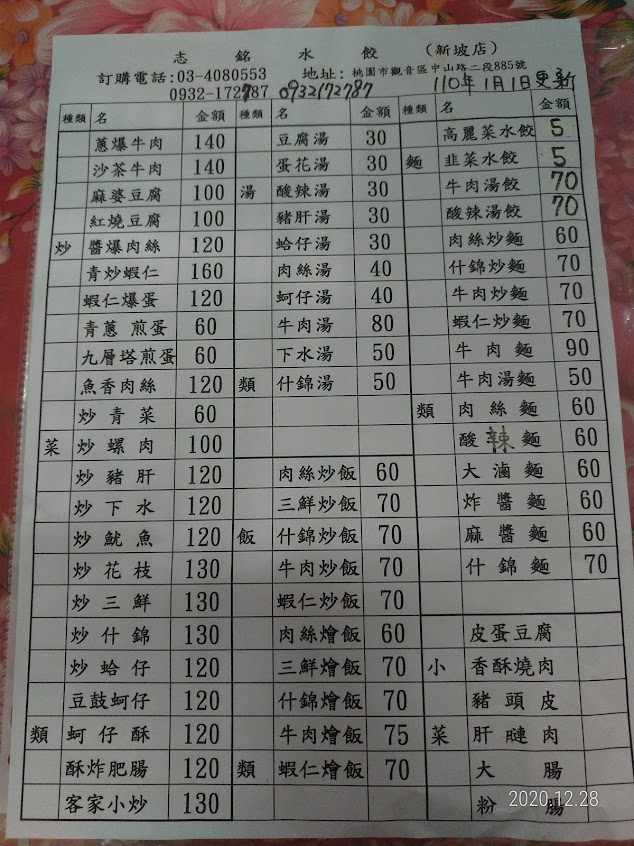 志銘水餃（新坡店）
訂購電話:03-4080553 地址: 桃園市觀音區中山路二段885號
0932-172787 0932172787 110年1月1日更新
種類 名 金額 種類 名 金額 種類 名 金額
蔥爆牛肉 140 豆腐湯 30 高麗菜水餃 5
沙茶牛肉 140 蛋花湯 30 麵 韭菜水餃 5
麻婆豆腐 100 湯 酸辣湯 30 牛肉湯餃 70
紅燒豆腐 100 豬肝湯 30 酸辣湯餃 70
炒 醬爆肉絲 120 蛤仔湯 30 肉絲炒麵 60
青炒蝦仁 160 肉絲湯 40 什錦炒麵 70
蝦仁爆蛋 120 蚵仔湯 40 牛肉炒麵 70
青蔥煎蛋 60 牛肉湯 80 蝦仁炒麵 70
九層塔煎蛋 60 下水湯 50 牛肉麵 90
魚香肉絲 120 類 什錦湯 50 牛肉湯麵 50
炒青菜 60 類 肉絲麵 60
菜 炒螺肉 100 酸辣麵 60
炒豬肝 120 肉絲炒飯 60 大滷麵 60
炒下水 120 三鮮炒飯 70 炸醬麵 60
炒魷魚 120 飯 什錦炒飯 70 麻醬麵 60
炒花枝 130 牛肉炒飯 70 什錦麵 70
炒三鮮 130 蝦仁炒飯 70
炒什錦 130 肉絲燴飯 60 皮蛋豆腐
炒蛤仔 120 三鮮燴飯 70 小 香酥燒肉
豆鼓蚵仔 120 什錦燴飯 70 豬頭皮
類 蚵仔酥 120 牛肉燴飯 75 菜 肝腱肉
酥炸肥腸 120 類 蝦仁燴飯 70 大腸
客家小炒 130 粉腸
2020.12.28